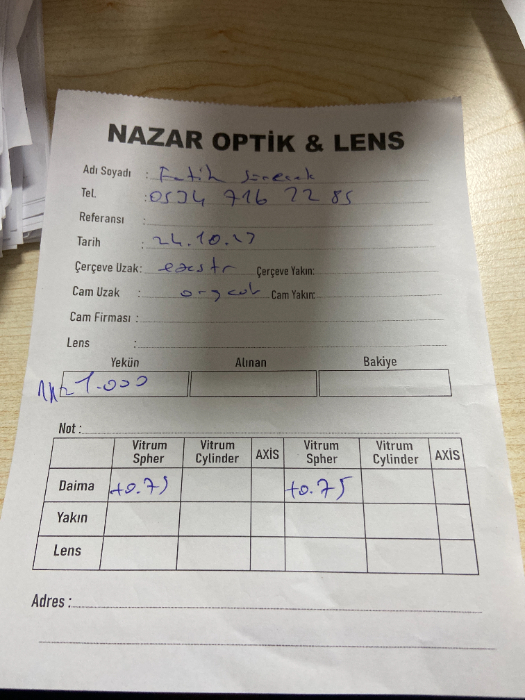 NAZAR OPTİK & LENS
Adı Soyadı : Fatih
Tel. : 0534 716 22 85
Referansı :
Tarih : 24.10.17
Çerçeve Uzak: Çerçeve Yakın:
Cam Uzak : Cam Yakın:
Cam Firması :
Lens :
Yekün Alınan Bakiye
1.000
Not :
Vitrum Spher Vitrum Cylinder AXİS Vitrum Spher Vitrum Cylinder AXİS
Daima +0.75 +0.75
Yakın
Lens
Adres :